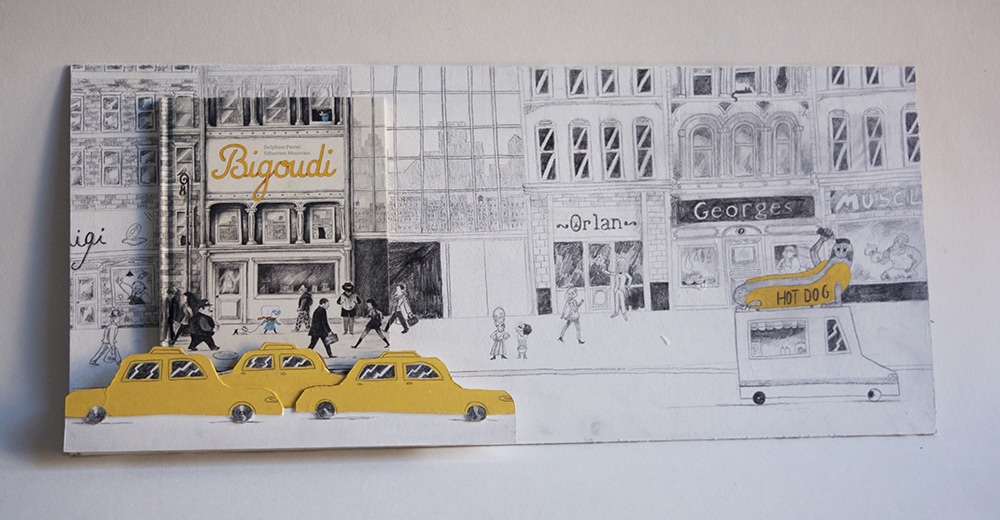 Delphine Perret
Sébastien Mourrain
Bigoudi
igi
Orlan
Georges
MUSCL
HOT DOG